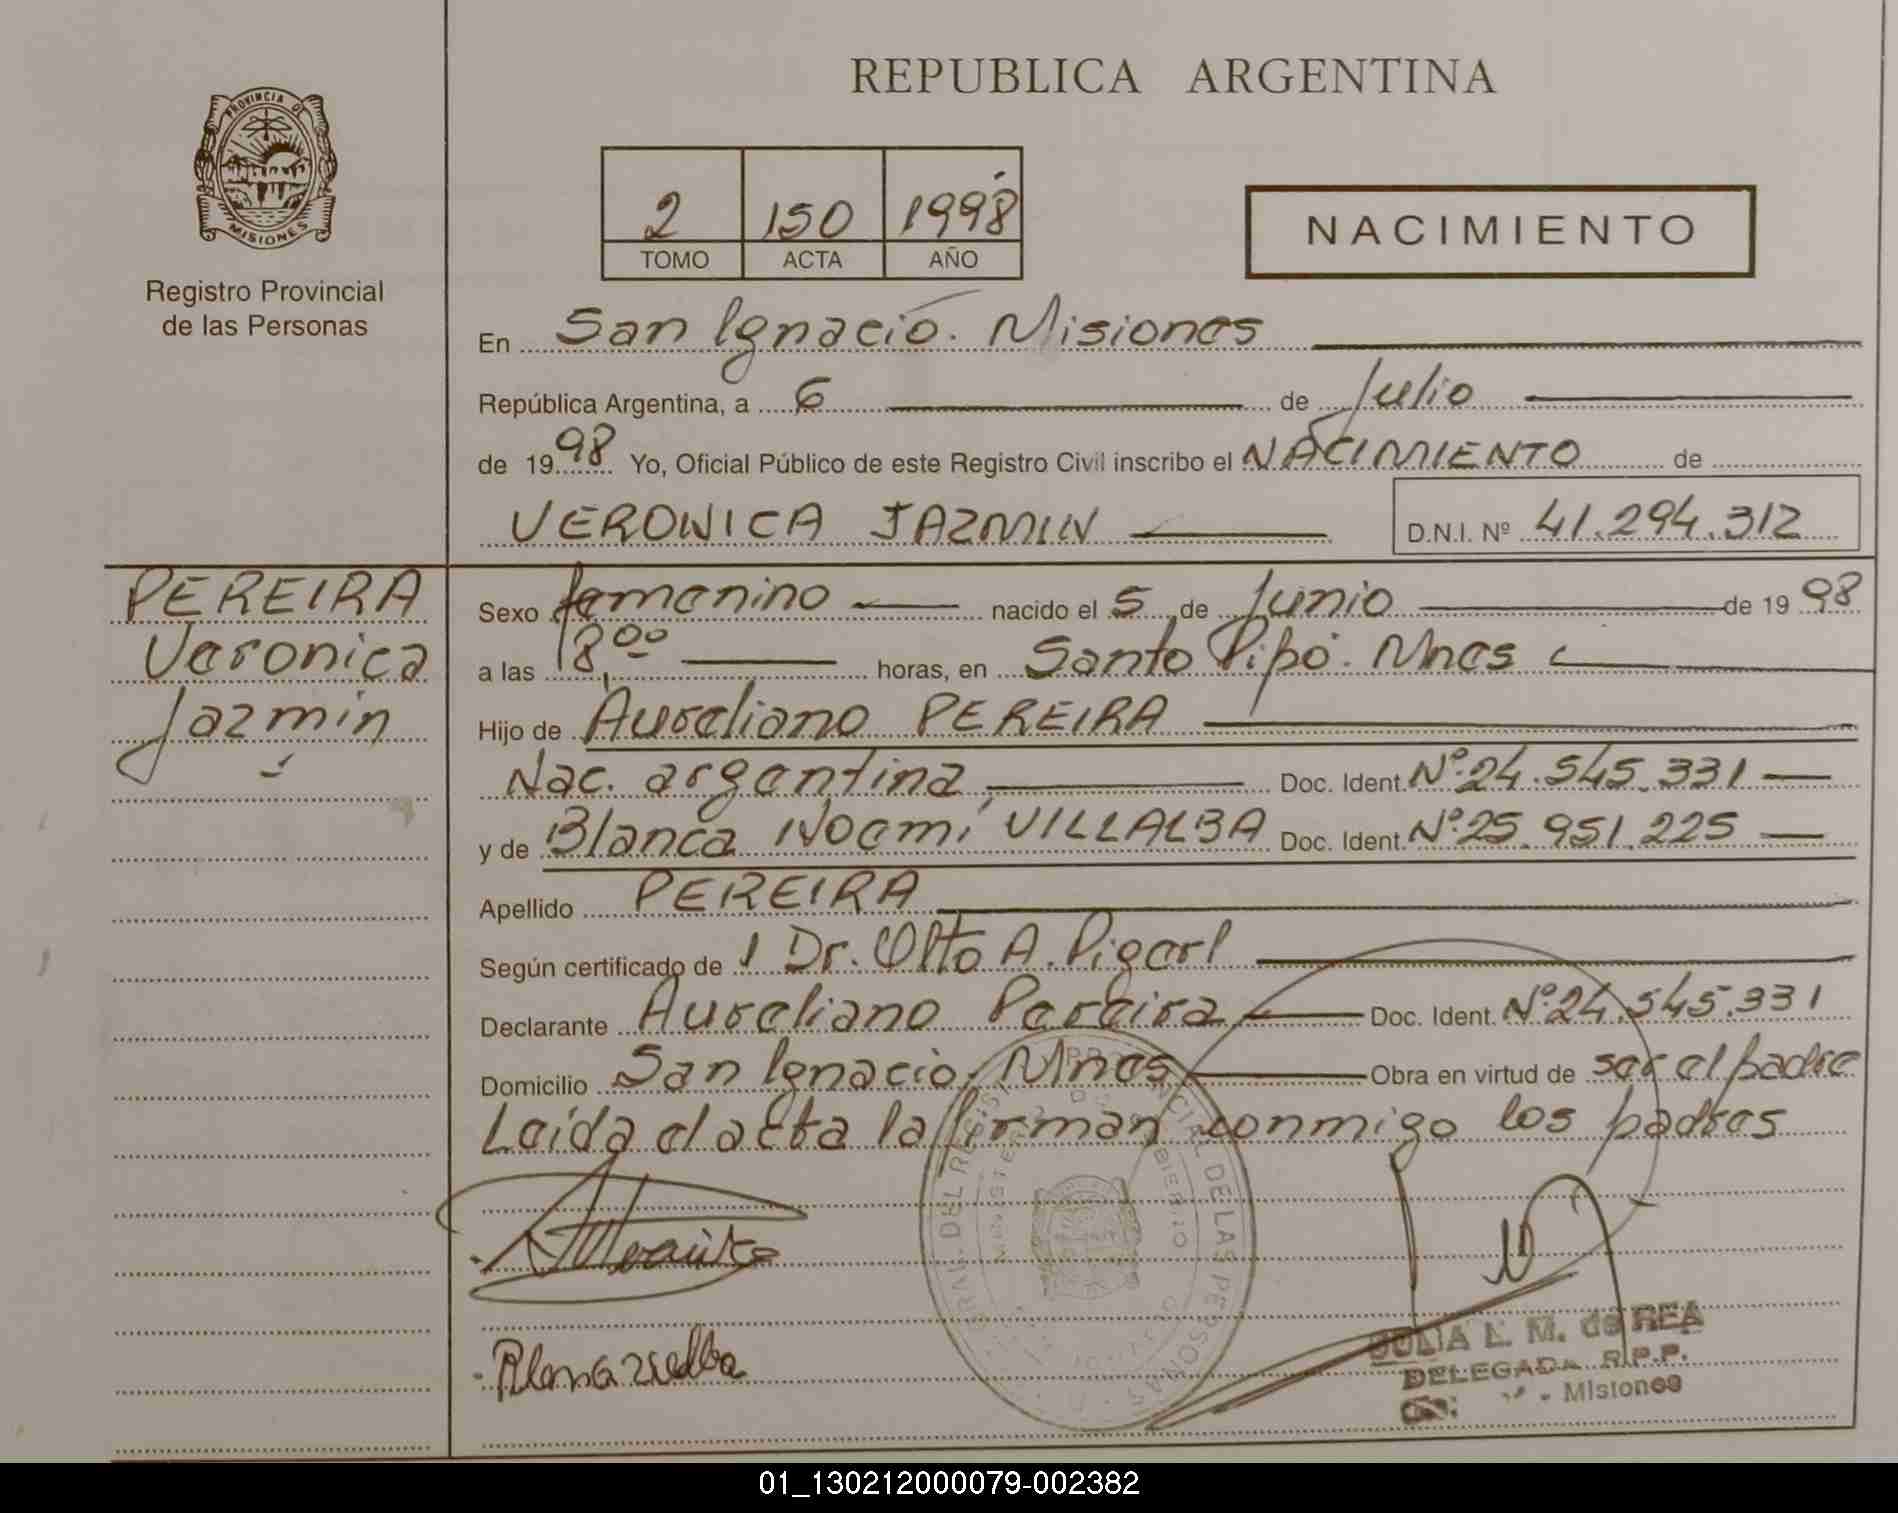 REPUBLICA ARGENTINA
PROVINCIA DE
MISIONES
Registro Provincial
de las Personas
2 150 1998
TOMO ACTA AÑO
NACIMIENTO
En San Ignacio. Misiones
República Argentina, a 6 de Julio
de 1998 Yo, Oficial Público de este Registro Civil inscribo el NACIMIENTO de
VERONICA JAZMIN D.N.I. Nº 41.294.312
PEREIRA
Veronica
Jazmin
Sexo femenino nacido el 5 de Junio de 1998
a las 18,00 horas, en Santo Pipó. Mnes
Hijo de Aureliano PEREIRA
Nac. argentina Doc. Ident. Nº 24.545.331
y de Blanca Noemi VILLALBA Doc. Ident. Nº 25.951.225
Apellido PEREIRA
Según certificado de 1 Dr. Otto A.
Declarante Aureliano Pereira Doc. Ident. Nº 24.545.331
Domicilio San Ignacio, Mnes Obra en virtud de ser el padre
Leída el acta la firman conmigo los padres
DEL REGISTRO PROVINCIAL DE LAS PERSONAS
L. M. de REA
DELEGADA R.P.P.
Misiones
01_130212000079-002382